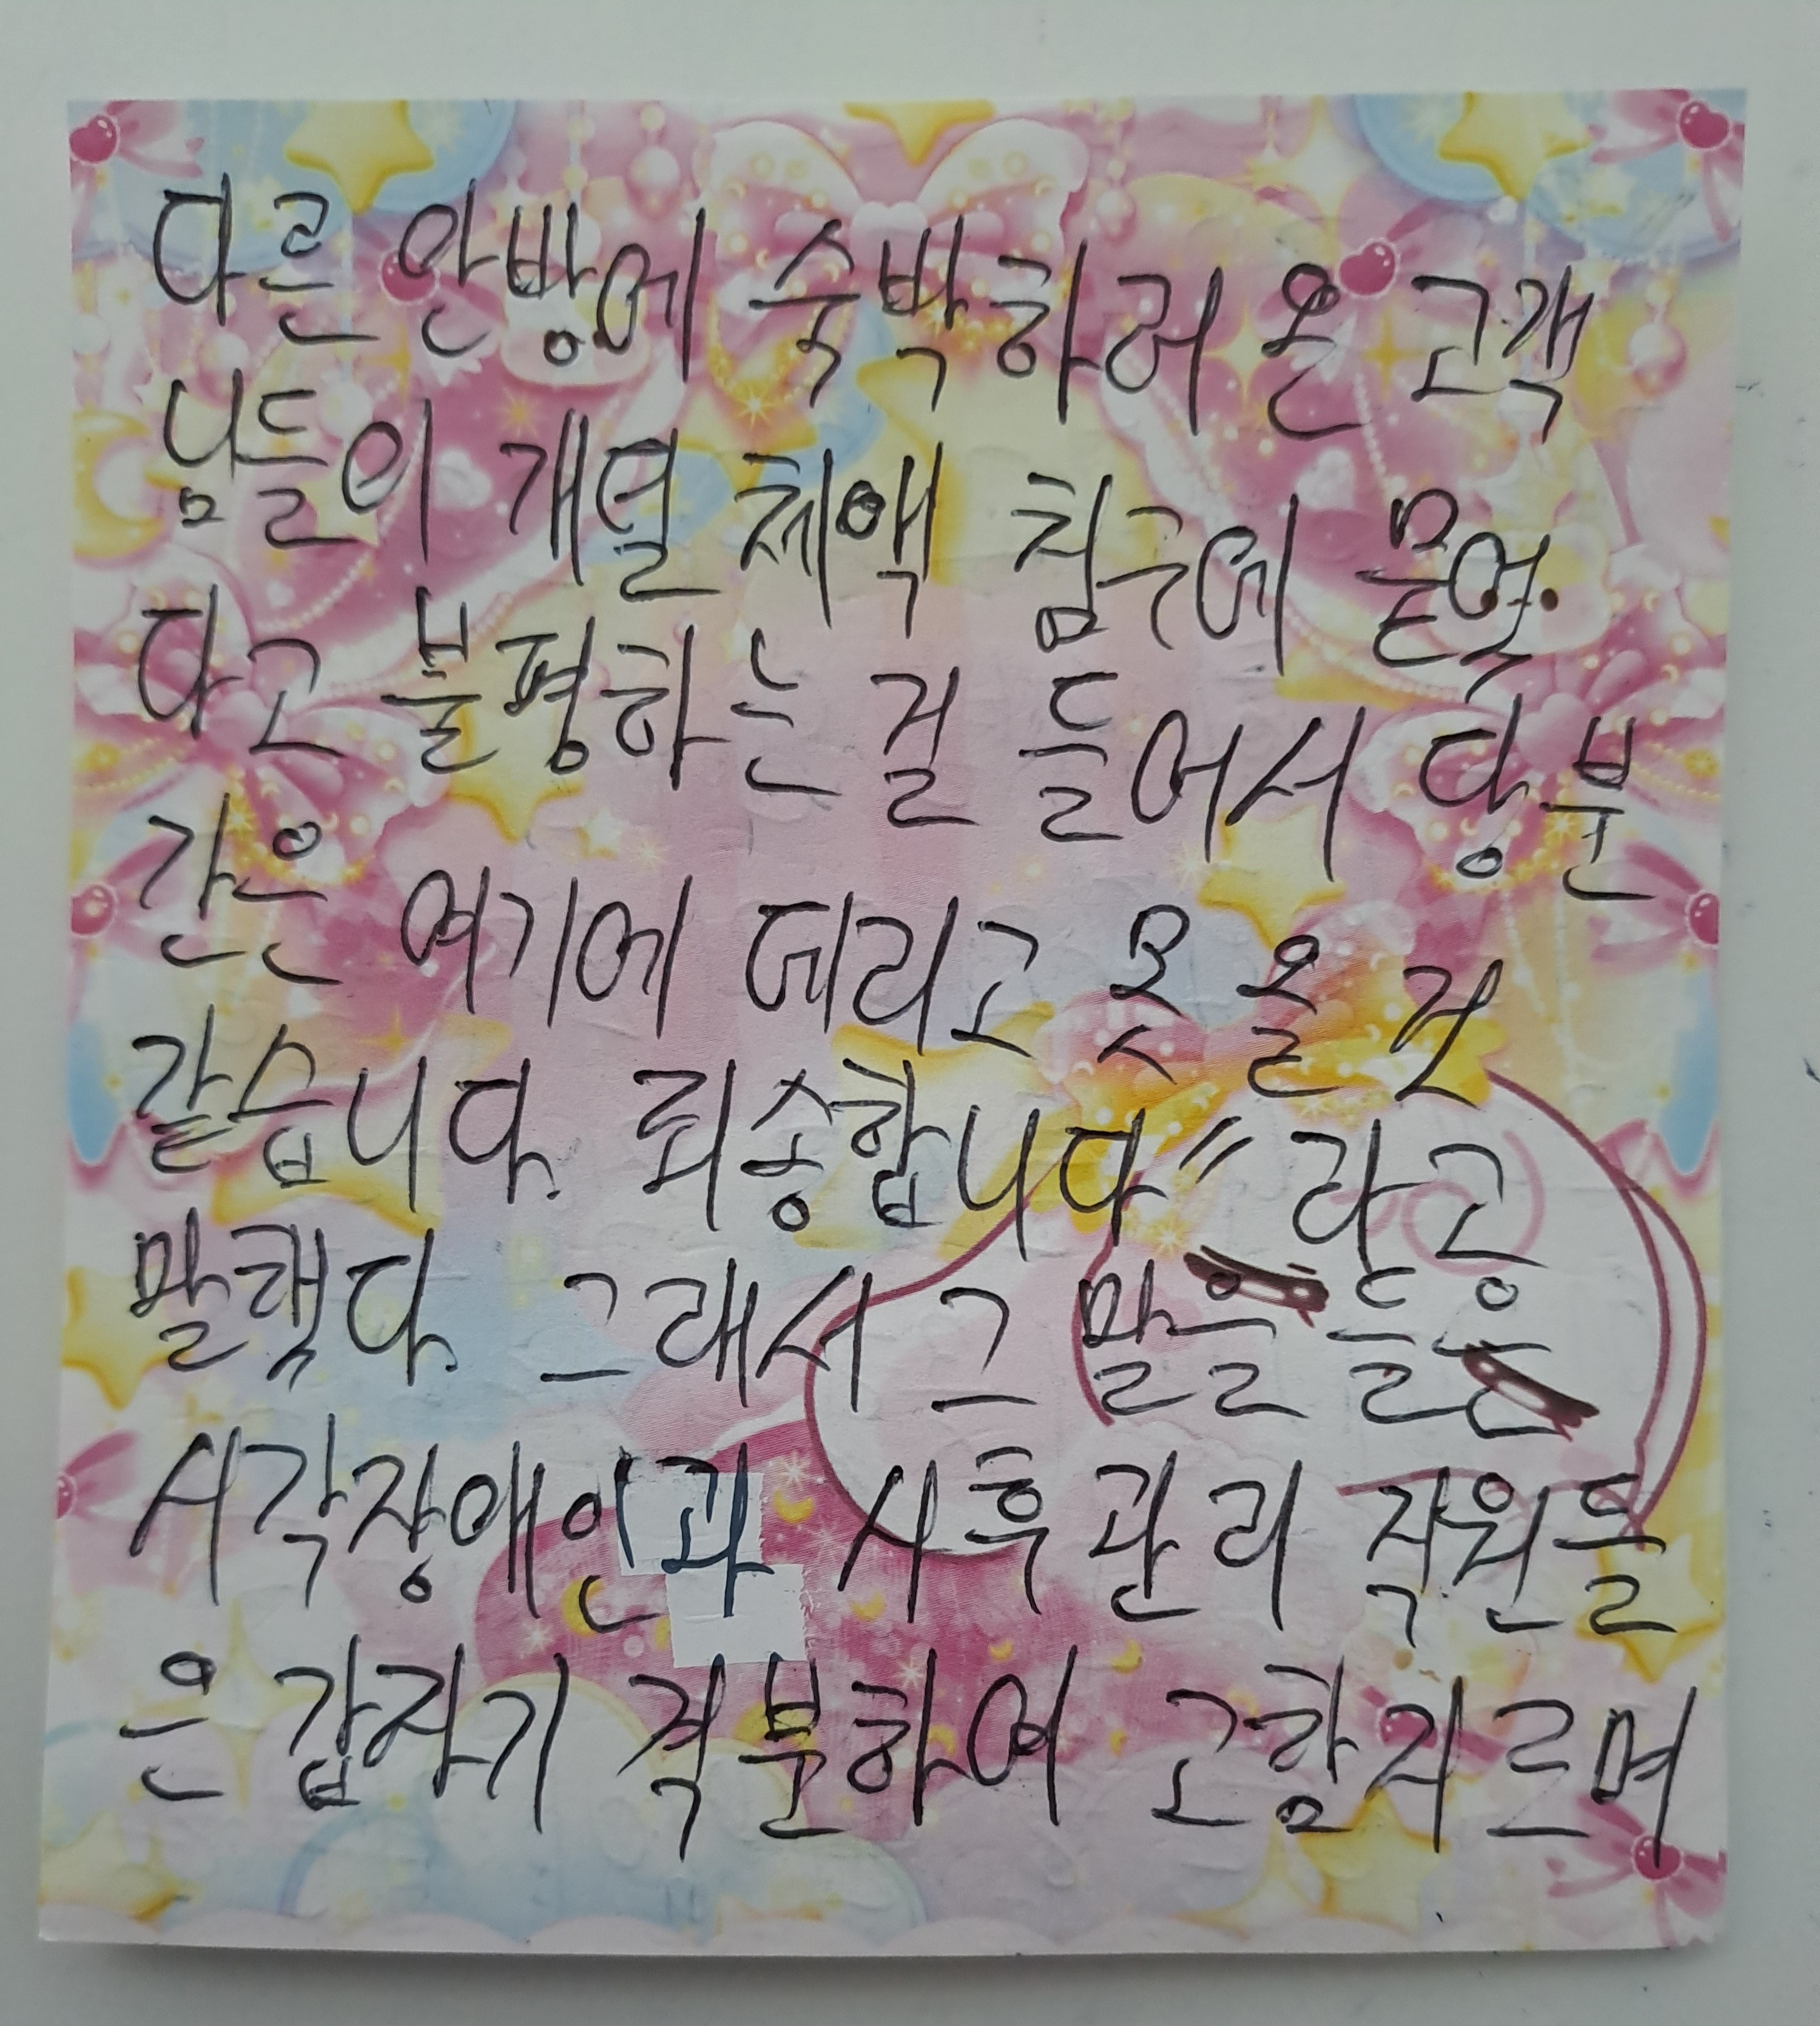 다른 안방에 숙박하러 온 고객
님들이 개열 체액 침구에 묻었
다고 불평하는 걸 들어서 당분
간은 여기에 데리고 못 올 것
같습니다. 죄송합니다" 라고
말했다. 그래서 그 말을 들은
시각장애인과 사후관리 직원들
은 갑자기 격분하여 고함지르며